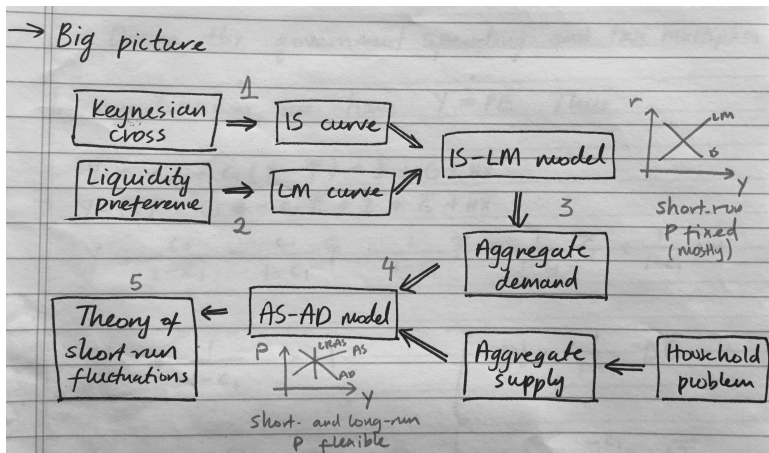 → Big picture
1
Keynesian
cross
IS curve
Liquidity
preference
LM curve
2
IS-LM model
r
LM
IS
Y
short-run
P fixed
(mostly)
3
Aggregate
demand
4
5
Theory of
short-run
fluctuations
AS-AD model
P
LRAS
AS
AD
Y
short- and long-run
P flexible
Aggregate
supply
Household
problem